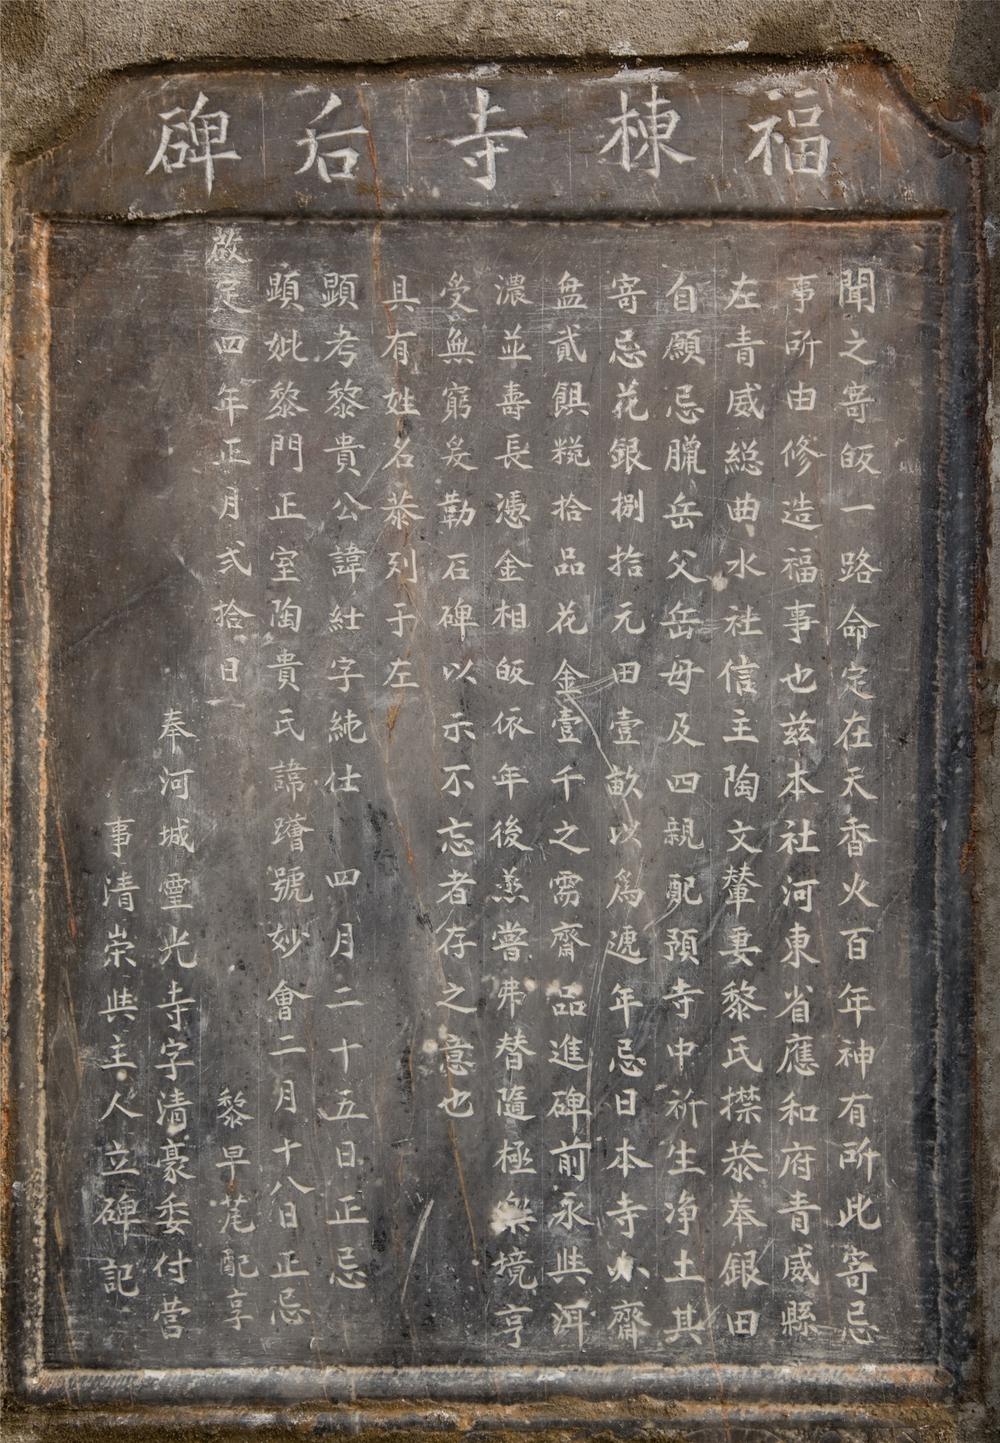 福棟寺后碑
聞之寄皈一路命定在天香火百年神有所此寄忌
事所由修造福事也茲本社河東省應和府青威縣
左青威総曲水社信主陶文輦妻黎氏㩒恭奉銀田
自願忌臘岳父岳母及四親配預寺中祈生净土其
寄忌花銀捌拾元田壹畝以爲遞年忌日本寺小齋
盆貳餌糍拾品花金壹千之雱齋品進碑前永與洱
濃並壽長憑金相皈依年後蒸嘗弗替隨極樂境亨
受無窮爰勒石碑以示不忘者存之意也
具有姓名恭列于左
顯考黎貴公諱紸字純仕四月二十五日正忌
顯妣黎門正室陶貴氏諱號妙會二月十八日正忌
黎早配享
啟定四年正月弍拾日
奉河城靈光寺字清豪委付营
事清崇與主人立碑記